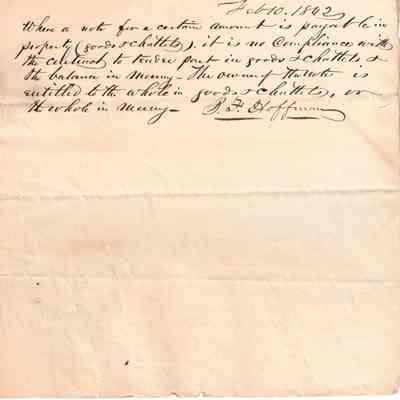 Feb 10. 1842
Where a note for a certain amount is payable in
property (goods & chattels), it is no Compliance with
the contract to tender part in goods & chattels, &
the balance in Money - The owner of the note is
entitled to the whole in goods & chattels, or
the whole in money -   P. F. Hoffman